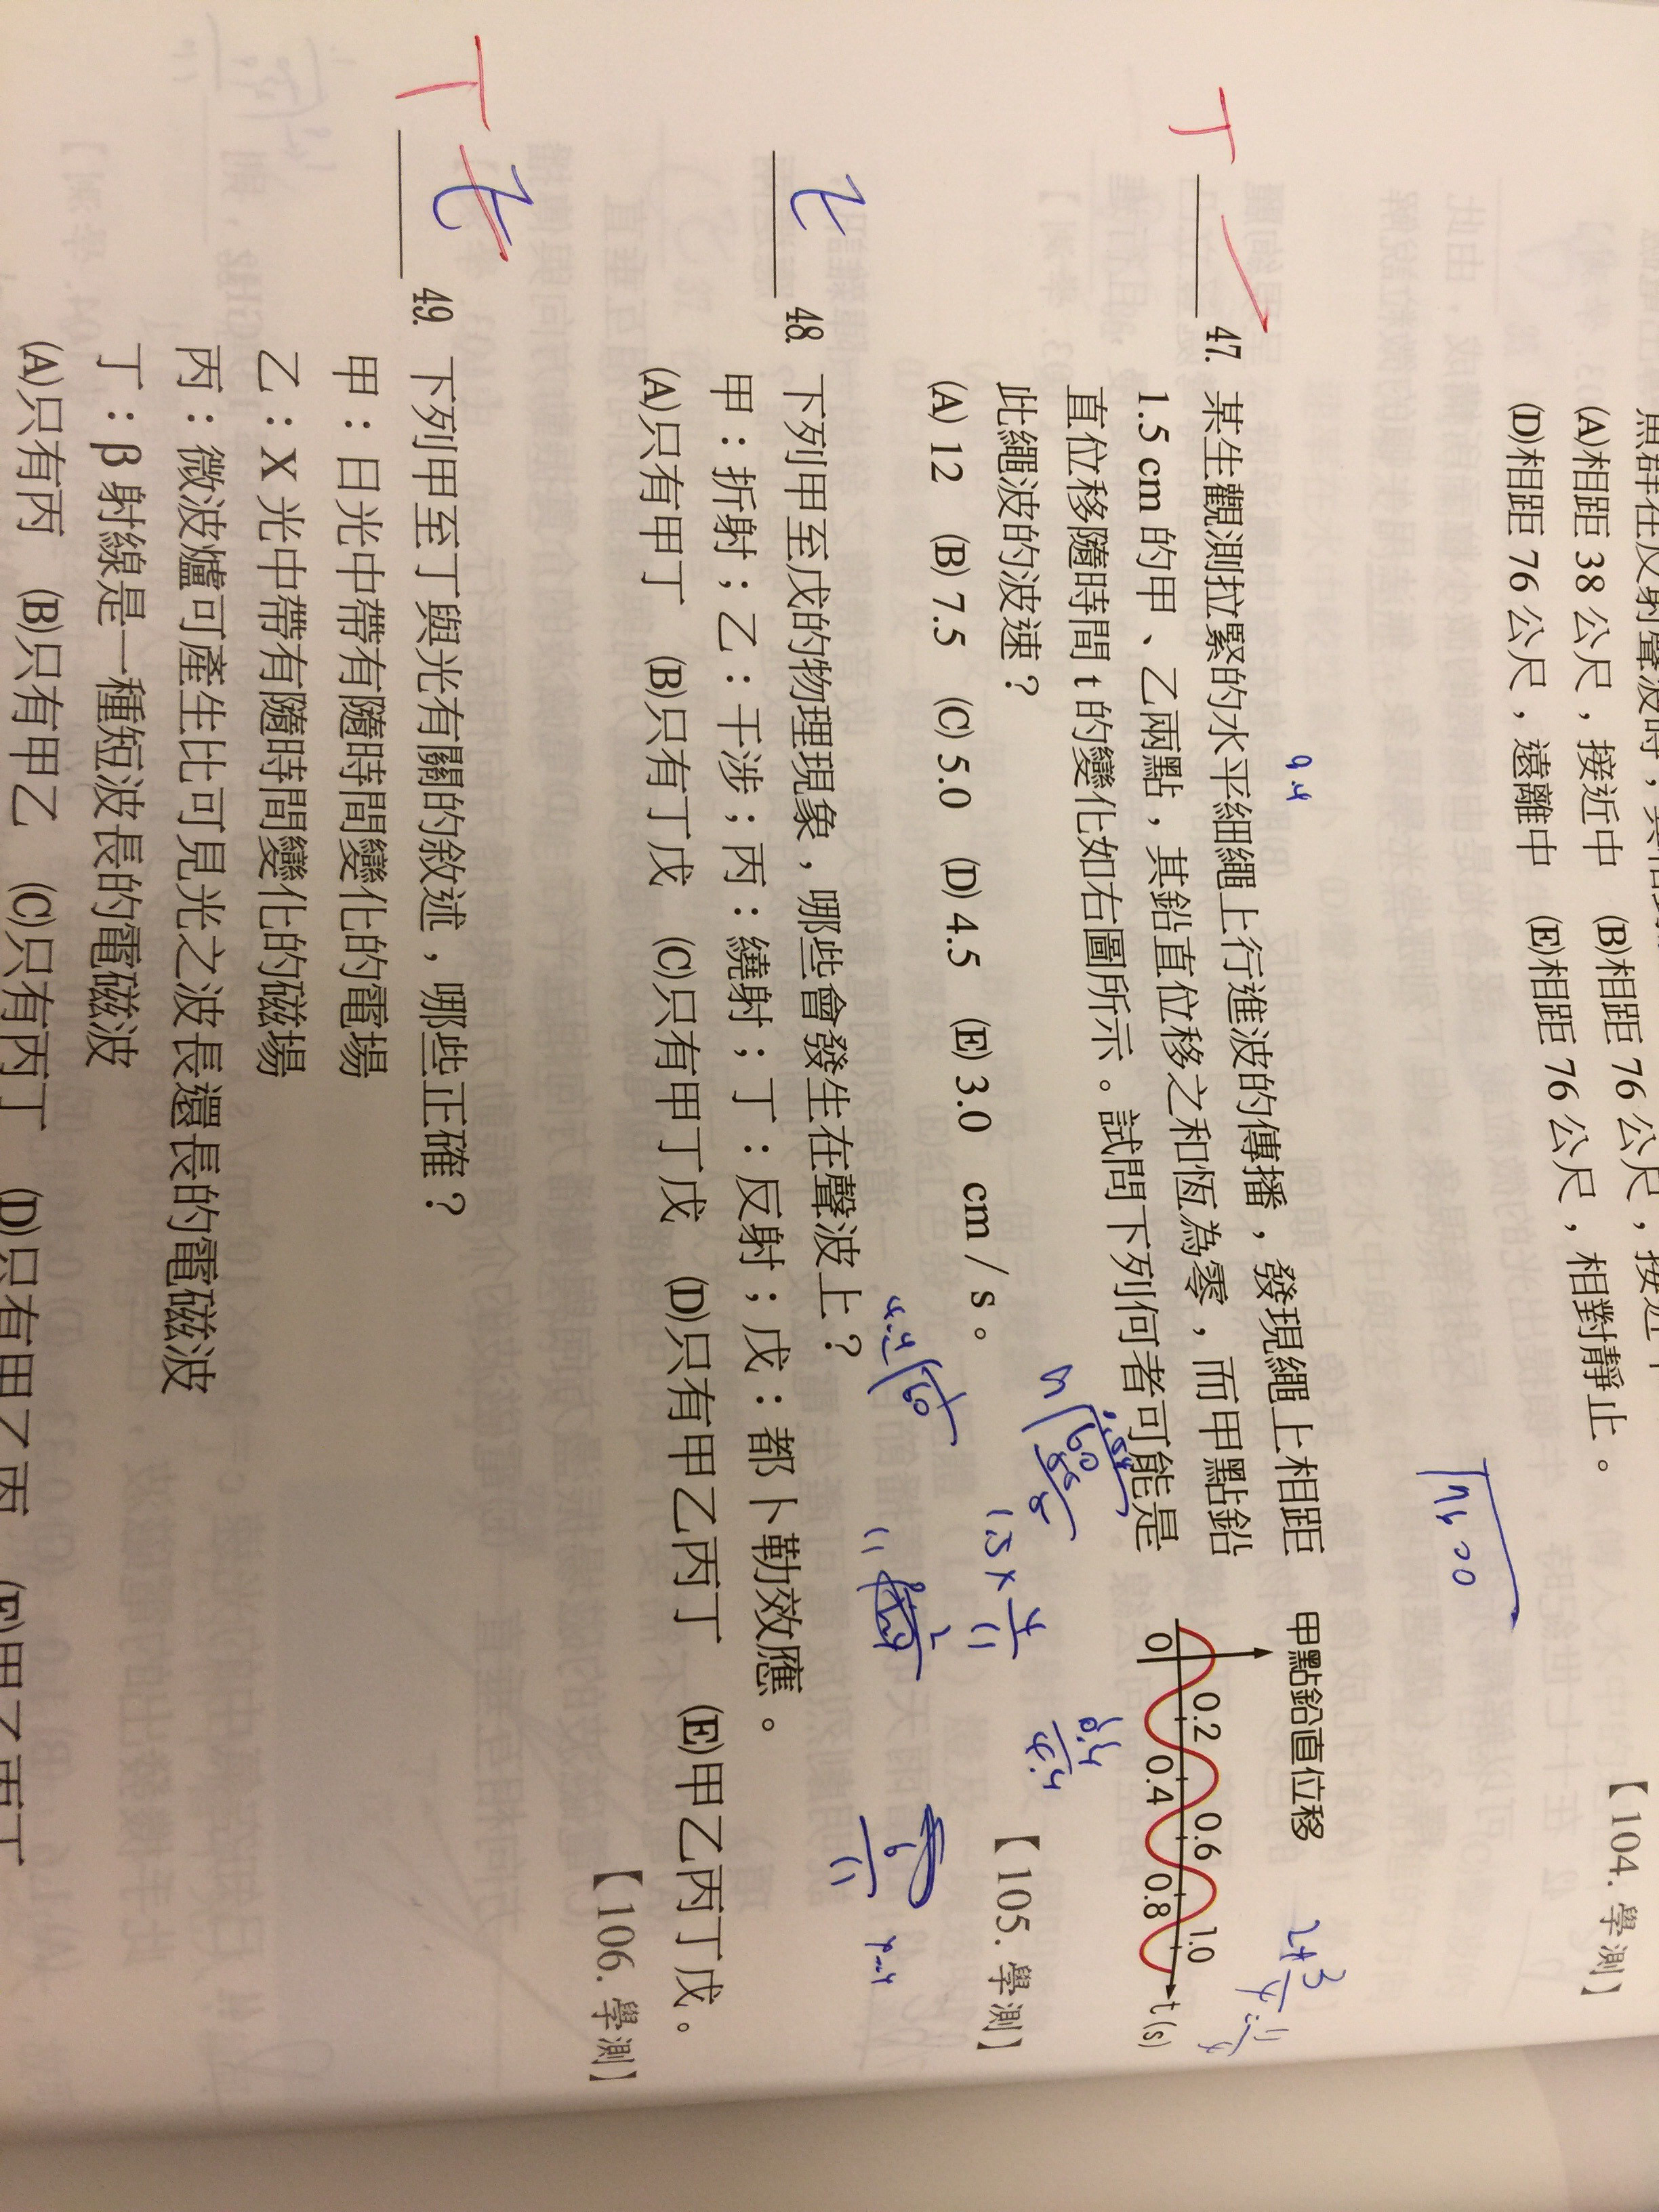 (A)相距 38 公尺，接近中 (B)相距 76 公尺，接近中
(D)相距 76 公尺，遠離中 (E)相距 76 公尺，相對靜止。
【104. 學測】
47. 某生觀測拉緊的水平細繩上行進波的傳播，發現繩上相距
1.5 cm 的甲、乙兩點，其鉛直位移之和恆為零，而甲點鉛
直位移隨時間 t 的變化如右圖所示。試問下列何者可能是
此繩波的波速？
(A) 12 (B) 7.5 (C) 5.0 (D) 4.5 (E) 3.0 cm / s。
【105. 學測】
甲點鉛直位移
0 0.2 0.4 0.6 0.8 1.0 t (s)
48. 下列甲至戊的物理現象，哪些會發生在聲波上？
甲：折射；乙：干涉；丙：繞射；丁：反射；戊：都卜勒效應。
(A)只有甲丁 (B)只有丁戊 (C)只有甲丁戊 (D)只有甲乙丙丁 (E)甲乙丙丁戊。
【106. 學測】
49. 下列甲至丁與光有關的敘述，哪些正確？
甲：日光中帶有隨時間變化的電場
乙：X 光中帶有隨時間變化的磁場
丙：微波爐可產生比可見光之波長還長的電磁波
丁：β 射線是一種短波長的電磁波
(A)只有丙 (B)只有甲乙 (C)只有丙丁 (D)只有甲乙丙 (E)甲乙丙丁